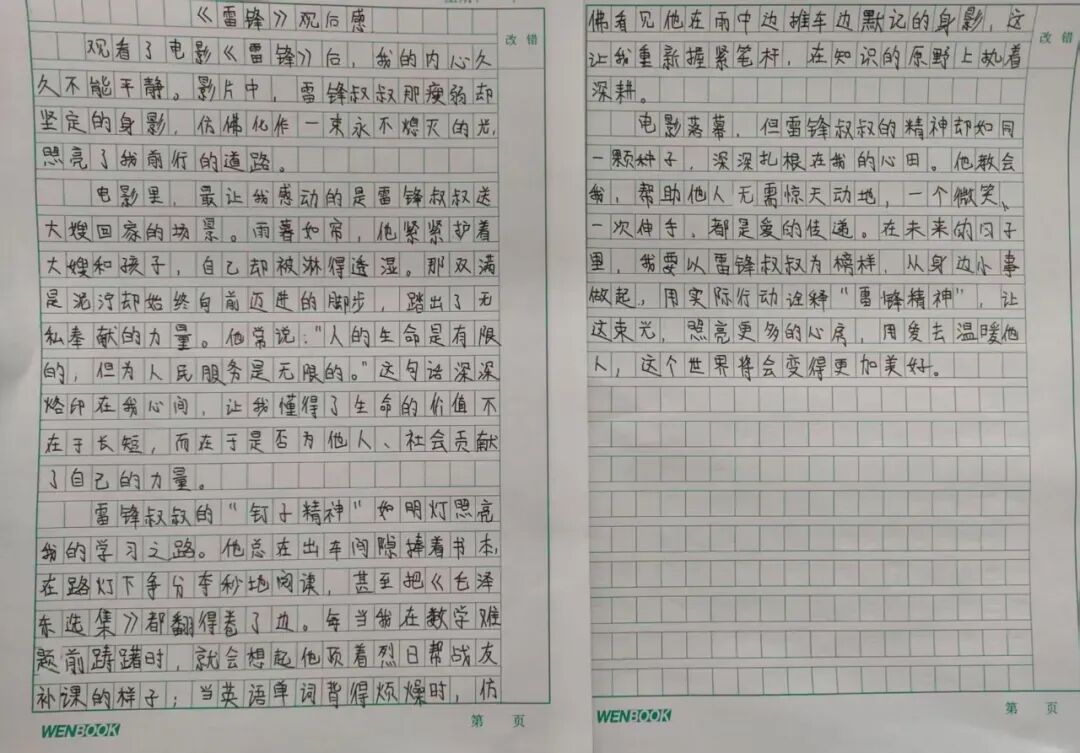 《雷锋》观后感
改错
观看了电影《雷锋》后，我的内心久
久不能平静。影片中，雷锋叔叔那瘦弱却
坚定的身影，仿佛化作一束永不熄灭的光，
照亮了我前行的道路。
电影里，最让我感动的是雷锋叔叔送
大嫂回家的场景。雨幕如帘，他紧紧护着
大嫂和孩子，自己却被淋得透湿。那双满
是泥泞却始终向前迈进的脚步，踏出了无
私奉献的力量。他常说："人的生命是有限
的，但为人民服务是无限的。"这句话深深
烙印在我心间，让我懂得了生命的价值不
在于长短，而在于是否为他人、社会贡献
了自己的力量。
雷锋叔叔的"钉子精神"如明灯照亮
我的学习之路。他总在出车间隙捧着书本，
在路灯下争分夺秒地阅读，甚至把《毛泽
东选集》都翻得卷了边。每当我在数学难
题前踌躇时，就会想起他顶着烈日帮战友
补课的样子；当英语单词背得烦燥时，仿
WENBOOK
第 页
佛看见他在雨中边推车边默记的身影，这
改错
让我重新握紧笔杆，在知识的原野上执着
深耕。
电影落幕，但雷锋叔叔的精神却如同
一颗种子，深深扎根在我的心田。他教会
我，帮助他人无需惊天动地，一个微笑、
一次伸手，都是爱的传递。在未来的日子
里，我要以雷锋叔叔为榜样，从身边小事
做起，用实际行动诠释"雷锋精神"，让
这束光，照亮更多的心房，用爱去温暖他
人，这个世界将会变得更加美好。
WENBOOK
第 页